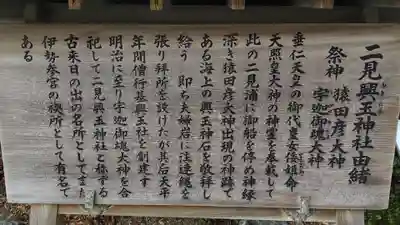 二見興玉神社由緒
祭神　猿田彦大神
宇迦御魂大神
垂仁天皇の御代皇女倭姫命
天照皇大神の神霊を奉戴して
此の二見浦に御船を停め神縁
深き猿田彦大神出現の神跡で
ある海上の興玉神石を敬拝し
給う　即ち夫婦岩に注連縄を
張り拝所を設けたが其后天平
年間僧行基興玉社を創建す
明治に至り宇迦御魂大神を合
祀して二見興玉神社と称する
古来日の出の名所としてまた
伊勢参宮の禊所として有名で
ある